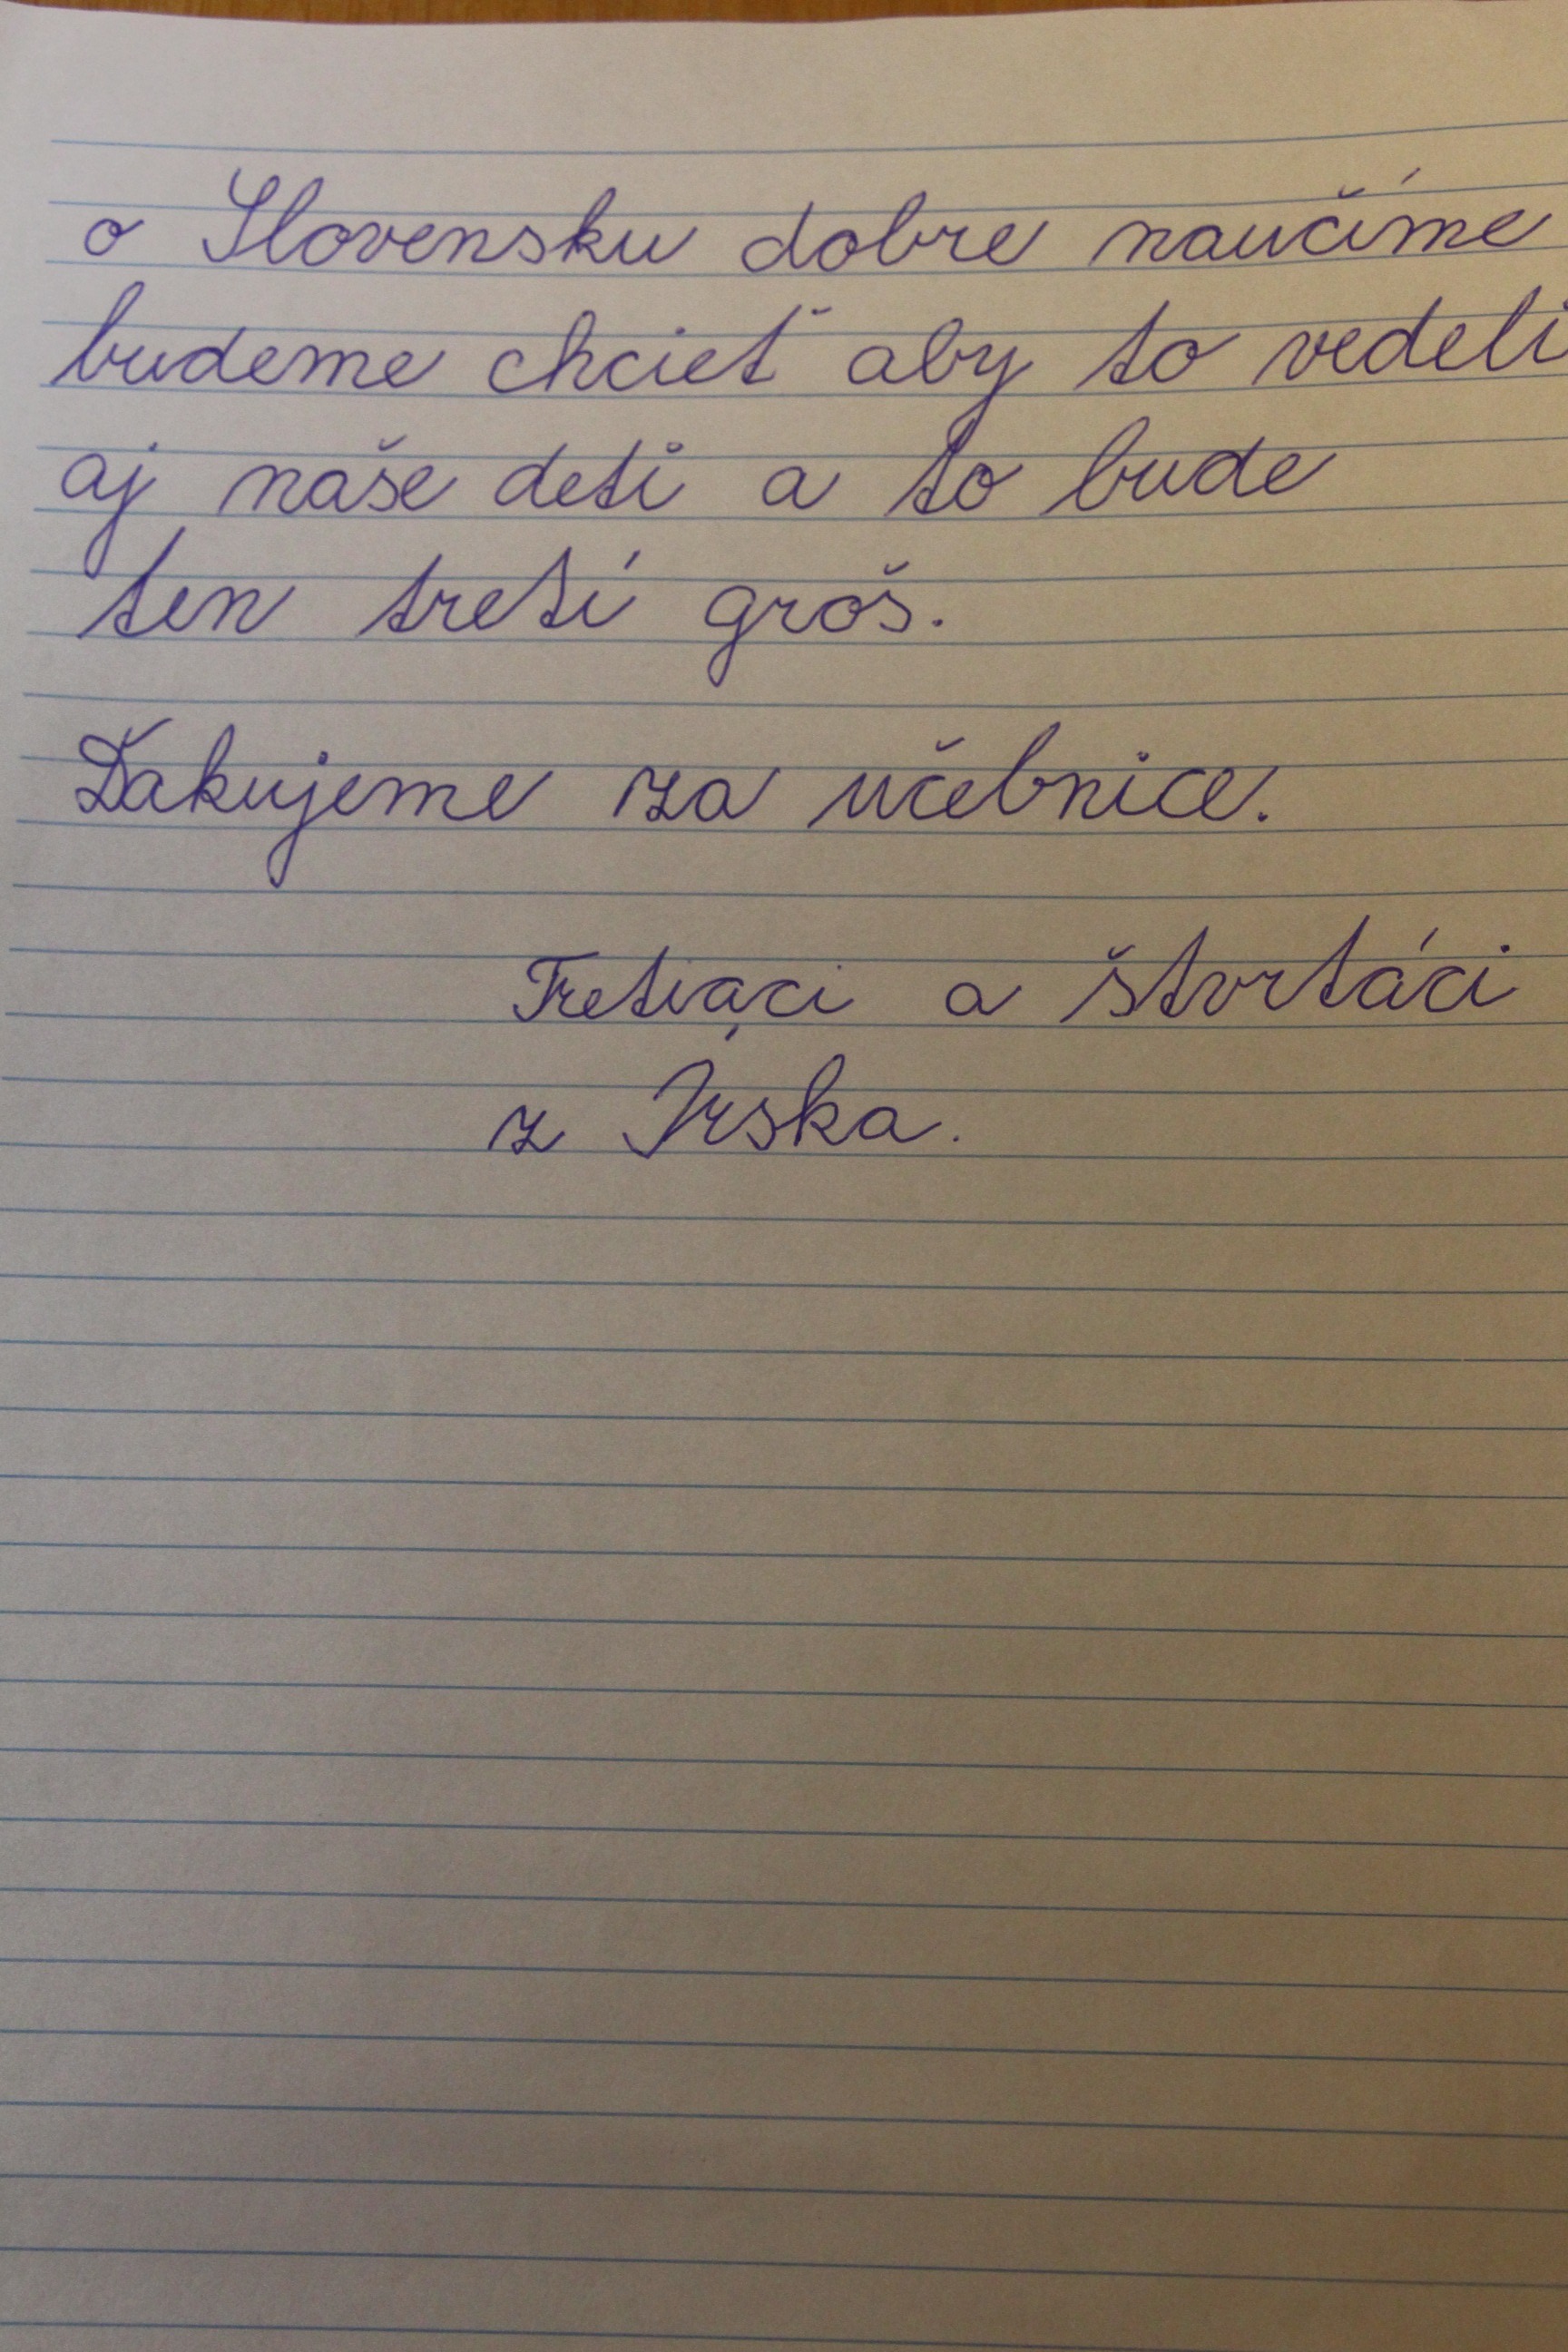 o Slovensku dobre naučíme
budeme chcieť aby to vedeli
aj naše deti a to bude
ten tretí groš.
Ďakujeme za učebnice.
Tretiaci a štvrtáci
z Írska.